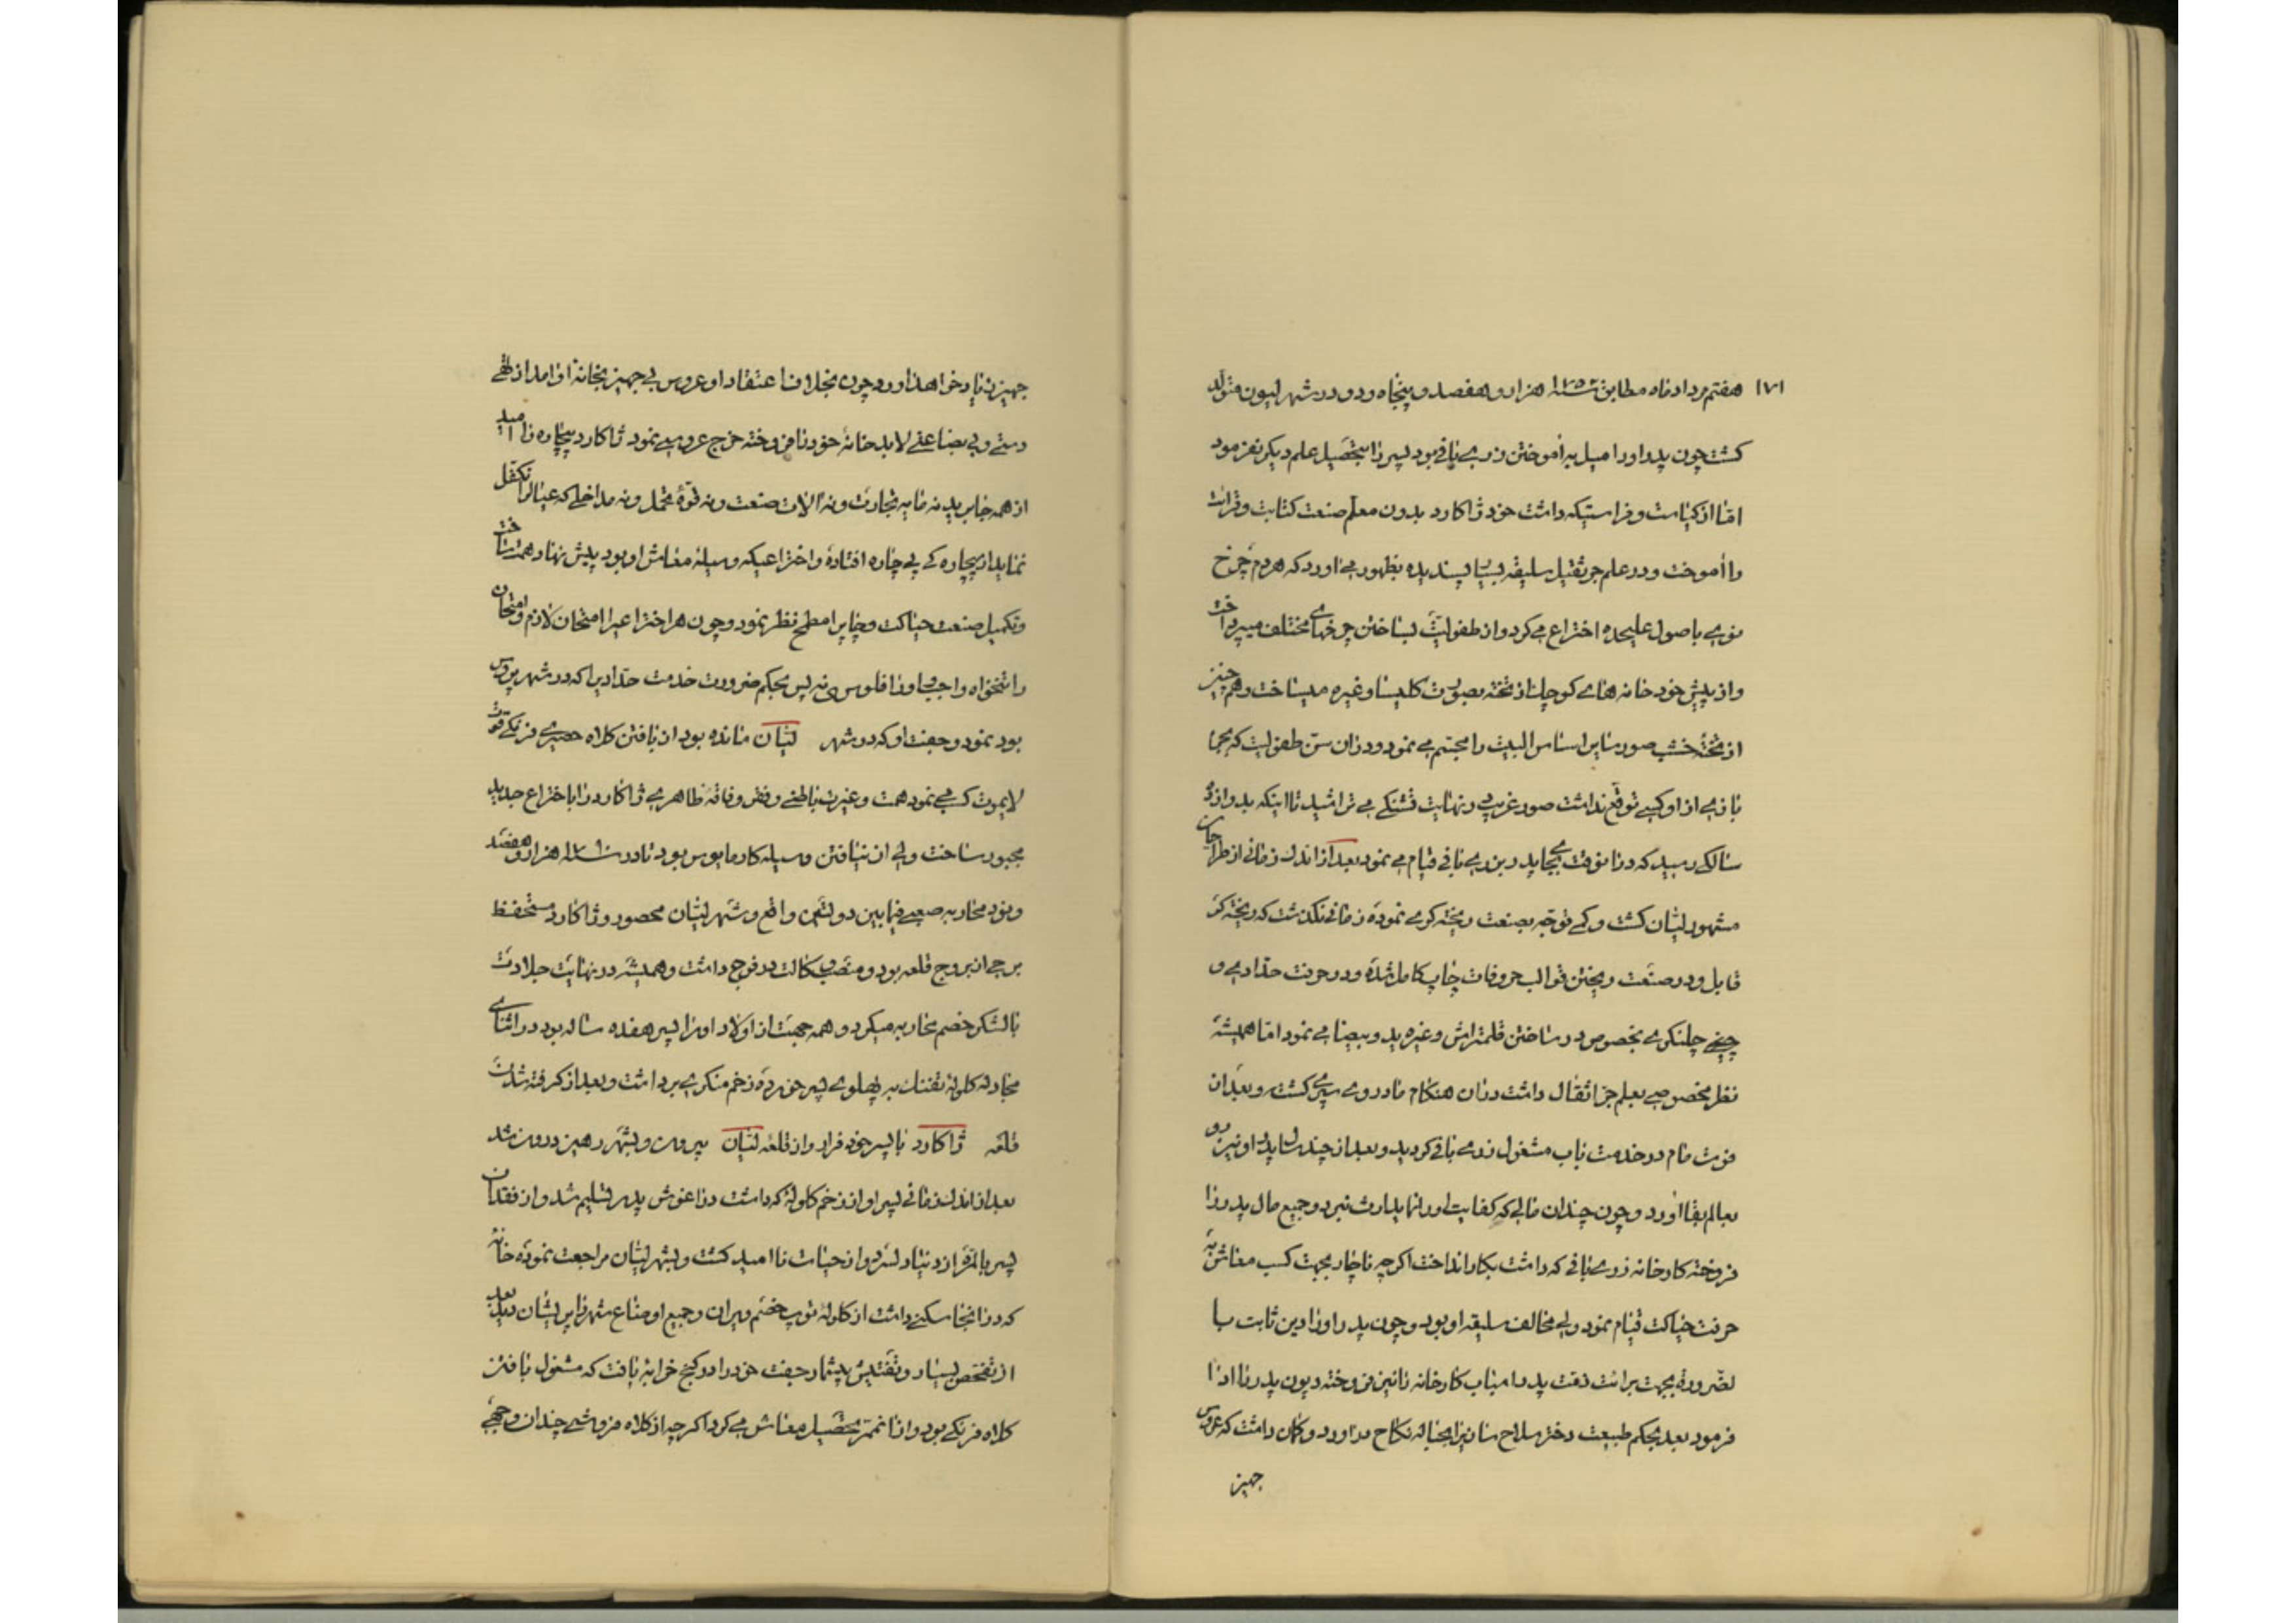 ۱۷۱ هفتم مرداد ماه مطابق سنه ۱۷۵۲ هزار و هفصد و پنجاه و دو در شهر لیون متولد
کشت چون پدر او را میل به آموختن زری بافی بود پسر را بتحصیل علم دیکر نفرمود
اما از کیاست و فراستیکه داشت خود ژاکارد بدون معلم صنعت کتابت و قرائت
را آموخت و در علم جر ثقیل سلیقه بسیار پسندیده بظهور می آورد که هر دم چرخ
نوعی باصول علیحده اختراع می کرد و از طفولیت بساختن چرخهای مختلف میپرداخت
و از پیش خود خانه های کوچک از تخته بصورت کلیسا و غیره میساخت و هم چنین
از تخته خشب صور سایر اساس البیت را مجسم می نمود و در آن سن طفولیت که بجز
بازی از او کسی توقع نداشت صور غریبی در نهایت قشنکی می تراشید تا اینکه بدوازده
سالکی رسید که در آنوقت بجای پدر بزری بافی قیام می نمود بعد از اندک زمانی از طراحان
مشهور لیان کشت و کمی توجه بصنعت ریخته کری نموده زمانی نکذشت که ریخته کر
قابل و در صنعت ریختن قوالب حروفات چاپ کامل شده و در حرفت حدادی و
چلنکری بخصوص در ساختن قلمتراش و غیره ید و بیضا می نمود اما همیشه
نظر مخصوصی بعلم جر اثقال داشت در آن هنکام مادر وی سپری کشت و بعد از
فوت مام در خدمت باب مشغول زری بافی کردید و بعد از چند سال پدر او نیز رو
بعالم بقا آورد و چون چندان مالی که کفایت او را نماید ارث نبرد و جمیع مال پدر را
فروخته کارخانه زری بافی که داشت بکار انداخت اکرچه ناچار بجهت کسب معاش به
حرفت حیاکت قیام نمود ولی مخالف سلیقه او بود و چون پدر او را دین ثابت بود
لضرورة بجهت برائت ذمت پدر اسباب کارخانه را نیز فروخته دیون پدر را ادا
فرمود بعد بحکم طبیعت دختر سلاح سازی را بحباله نکاح در آورد و کمان داشت که عروس
جهیز
جهیز زیاد خواهد آورد و چون بخلاف اعتقاد او عروس بی جهیز بخانه او آمد از تهی
دستی و بی بضاعتی لابد خانه خود را فروخته خرج عروسی نمود ژاکارد بیچاره نا امید
از همه جا برید نه مایه تجارت و نه آلات صنعت و نه قوه تحمل و نه مداخلی که عیال را تکفل
نماید از بیچاره کی پی چاره افتاده و اختراعیکه وسیله معاش او بود پیش نهاد همت ساخت
و تکمیل صنعت حیاکت و چاپ را مطمح نظر نمود و چون هر اختراعی را امتحان لازم و امتحان
را تنخواه واجب و او را فلوسی نه پس بحکم ضرورت خدمت حدادی را که در شهر بروس
بود نمود و جفت او که در شهر لیان مانده بود از بافتن کلاه حصیری فرنکی قوت
لایموت کسبی می نمود همت و غیرت باطنی و فقر و فاقه ظاهری ژاکارد را باختراع جدید
مجبور ساخت ولی از نیافتن وسیله کار مایوس بود تا در سنه ۱۷۹۰ هزار و هفصد
و نود محاربه صعبی فیما بین دولتین واقع و شهر لیان محصور و ژاکارد مستحفظ
برجی از بروج قلعه بود و منصب وکالت در فوج داشت و همیشه در نهایت جلادت
با لشکر خصم محاربه میکرد و همه جهت از اولاد او را پسر هفده ساله بود در اثنای
مجادله کلوله تفنک به پهلوی پسر خورده زخم منکری برداشت و بعد از کرفته شدن
قلعه ژاکارد با پسر خود فرار و از قلعه لیان بیرون و بشهر رهین درون شد
بعد از اندک زمانی پسر او از زخم کلوله که داشت در آغوش پدر تسلیم شد و از فقدان
پسر بالمره از دنیا دلسرد و از حیات نا امید کشت و بشهر لیان مراجعت نموده خانه
که در آنجا سکنی داشت از کلوله توپ خصم ویران و جمیع اوضاع شهر را پریشان دید بعد
از تفحص بسیار و تفتیش بیشمار جفت خود را در کنج خرابه یافت که مشغول بافتن
کلاه فرنکی بود و از آن ممر تحصیل معاش می کرد اکرچه از کلاه فروشی چندان وجهی